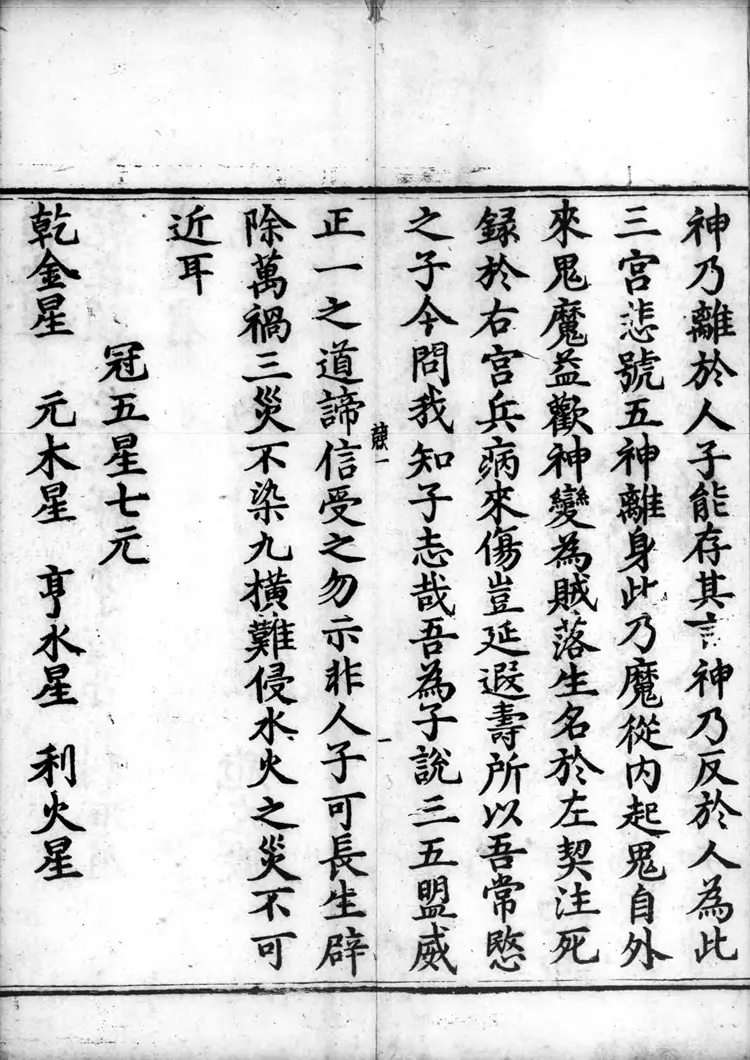 神乃離於人子能存其言神乃反於人為此
三宮悲號五神離身此乃魔從内起鬼自外
來鬼魔益歡神變為賊落生名於左契注死
録於右宮兵病來傷豈延遐壽所以吾常愍
之子今問我知子志哉吾為子說三五盟威
正一之道諦信受之勿示非人子可長生辟
除萬禍三災不染九橫難侵水火之災不可
近耳
冠五星七元
乾金星　元木星　亨水星　利火星